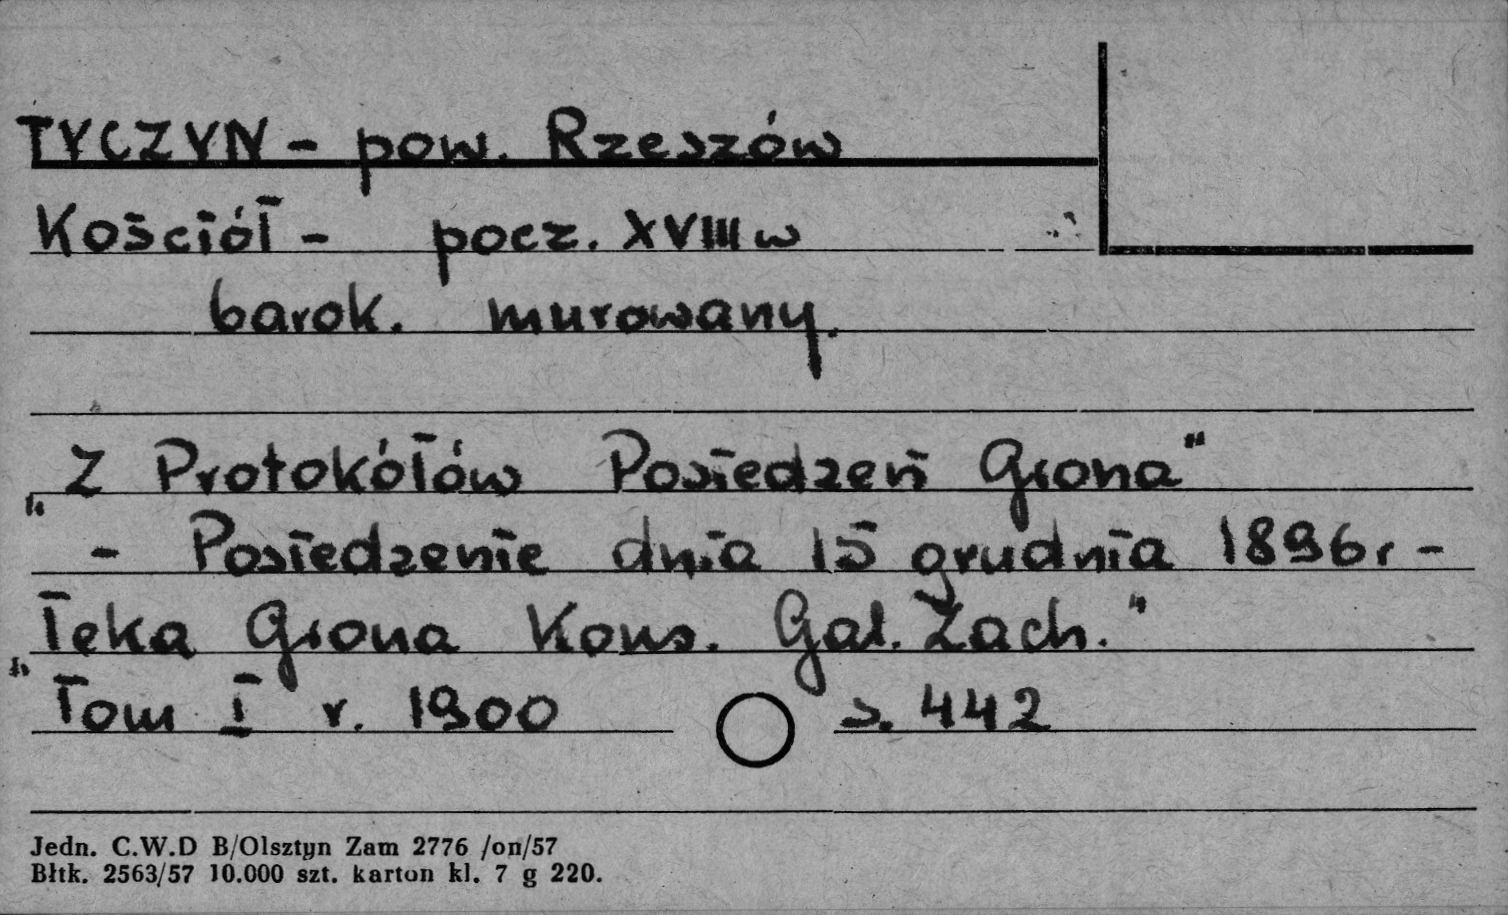 TYCZYN - pow. Rzeszów
Kościół - pocz. XVIII w
barok. murowany.
„Z Protokółów Posiedzeń Grona"
- Posiedzenie dnia 15 grudnia 1896r -
„Teka Grona Kons. Gal. Zach."
Tom I r. 1900 s. 442
Jedn. C.W.D B/Olsztyn Zam 2776 /on/57
Błtk. 2563/57 10.000 szt. karton kl. 7 g 220.